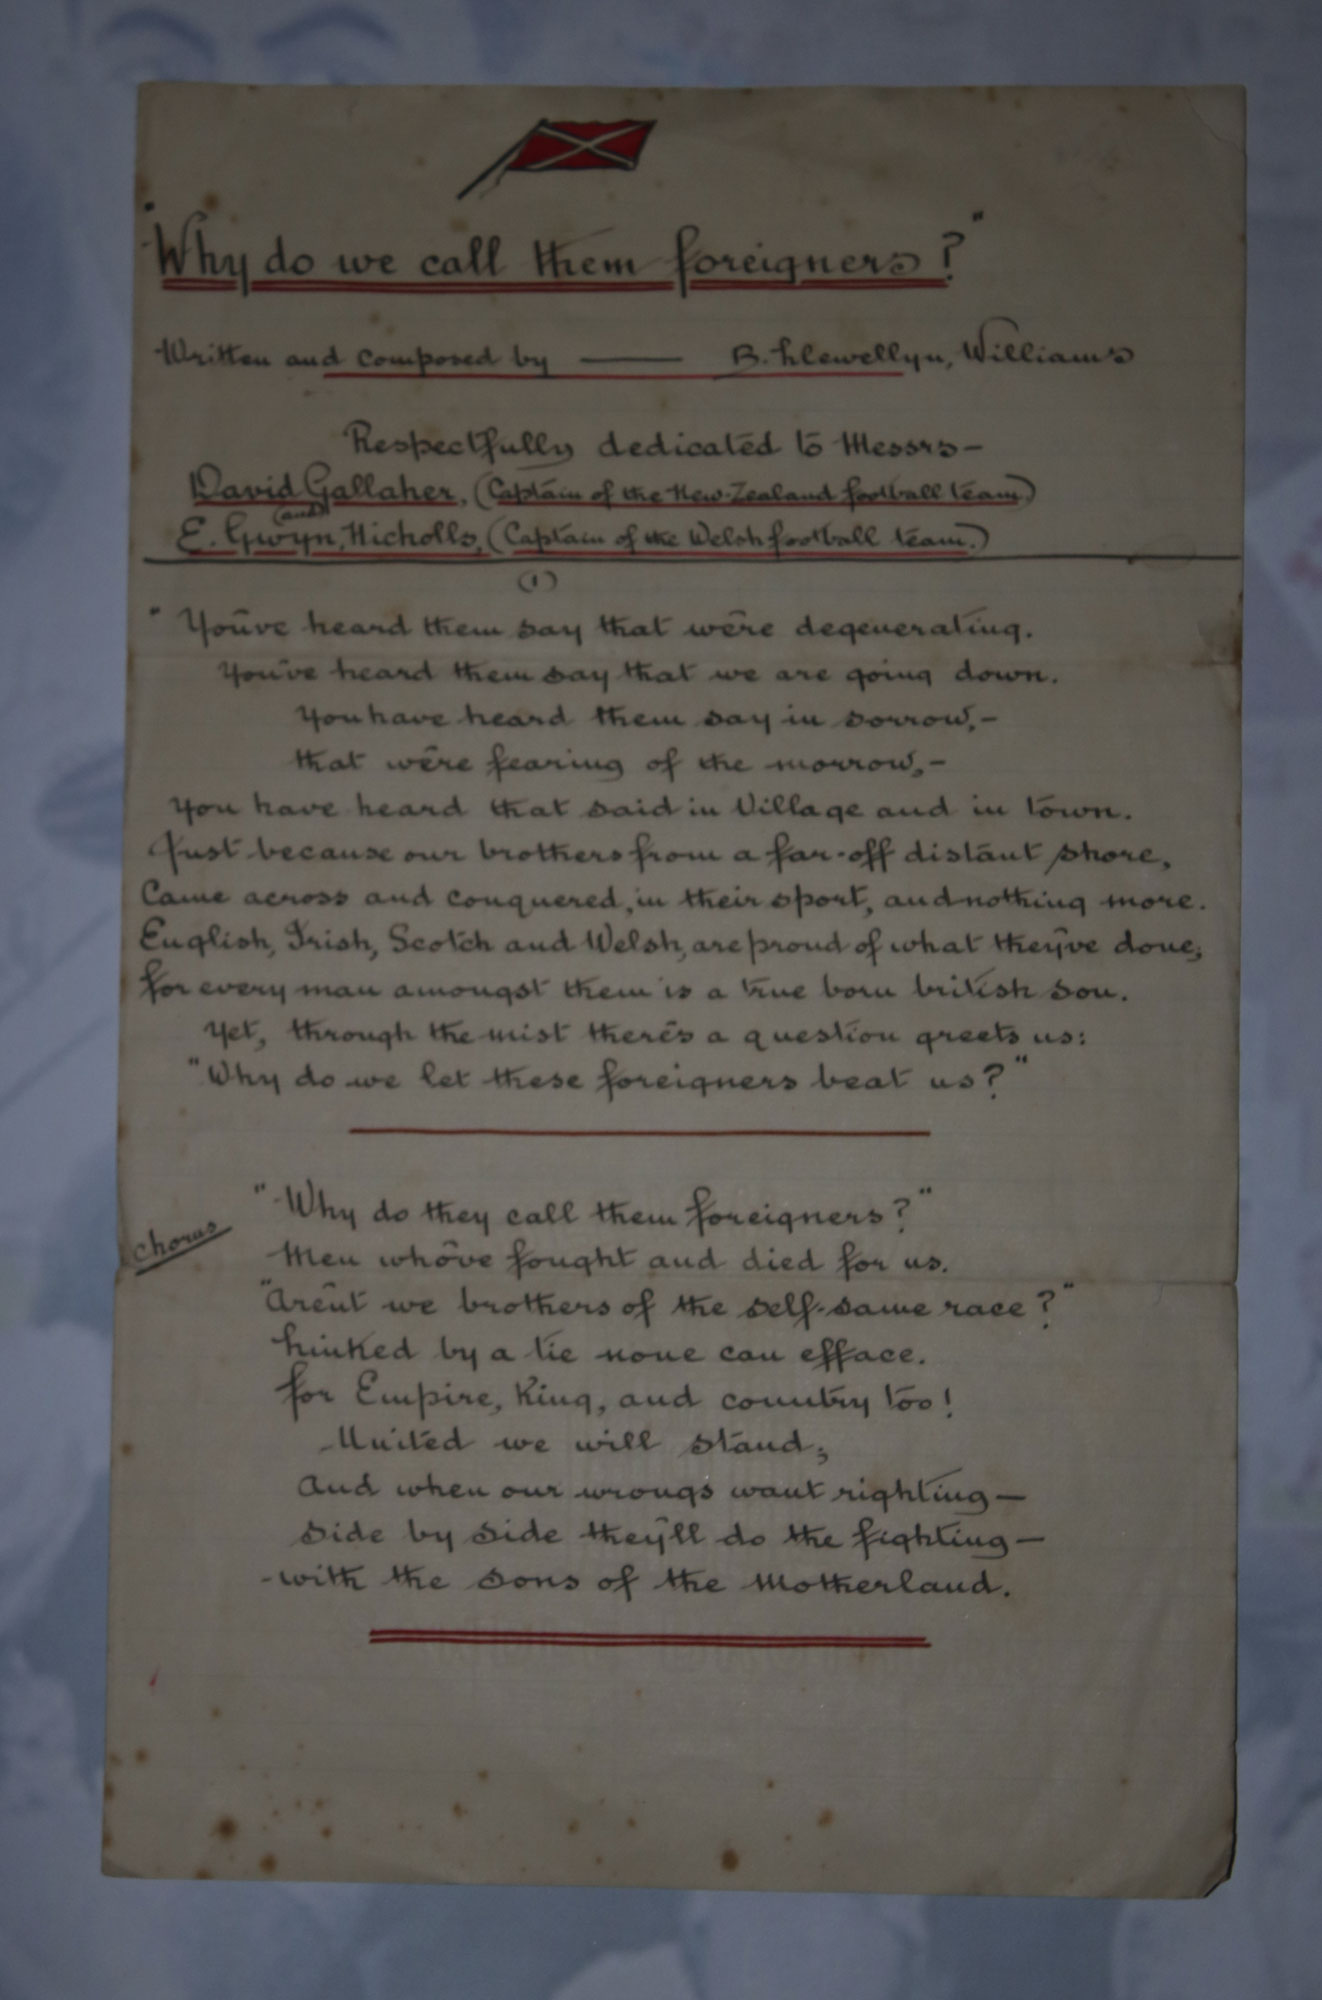 "Why do we call them foreigners?"
Written and composed by — B. Llewellyn, Williams
Respectfully dedicated to Messrs—
David Gallaher, (Captain of the New-Zealand football team)
(and)
E. Gwyn, Nicholls, (Captain of the Welsh football team.)
(1)
"You've heard them say that we're degenerating.
You've heard them say that we are going down.
You have heard them say in sorrow,-
that we're fearing of the morrow,-
You have heard that said in Village and in town.
Just because our brothers from a far-off distant shore,
Came across and conquered, in their sport, and nothing more.
English, Irish, Scotch and Welsh, are proud of what they've done,
for every man amongst them is a true born british son.
Yet, through the mist there's a question greets us:
"Why do we let these foreigners beat us?"
Chorus
"Why do they call them foreigners?"
Men who've fought and died for us.
"Aren't we brothers of the self-same race?"
Linked by a tie none can efface.
for Empire, King, and country too!
United we will stand;
and when our wrongs want righting—
side by side they'll do the fighting—
-with the sons of the Motherland.